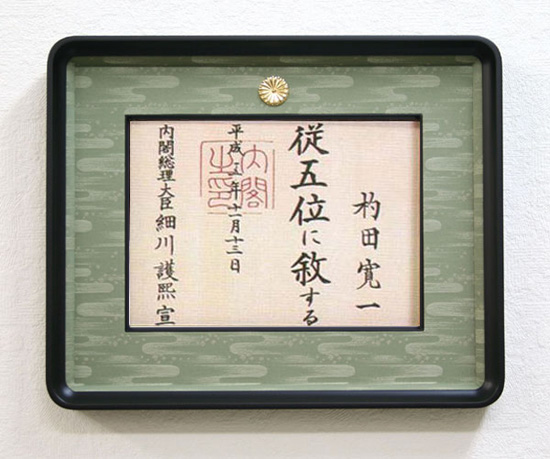 杓田寛一
従五位に叙する
平成五年十一月十三日
内閣之印
内閣総理大臣細川護熙宣